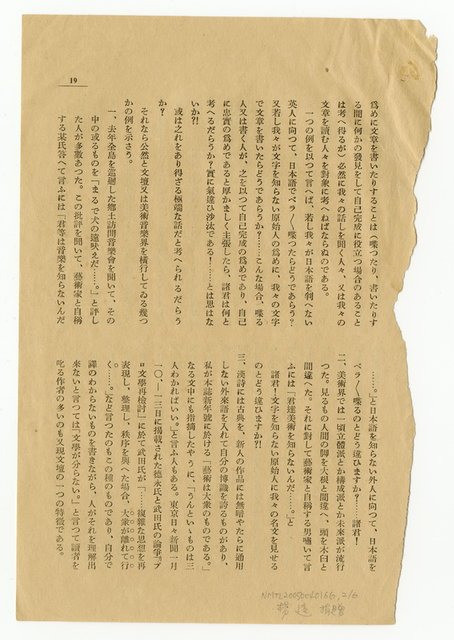 19
爲めに文章を書いたりすることは（喋つたり、書いたりす
る間に何かの發見をして自己完成に役立つ場合のあること
は考へ得るが）必然に我々の話しを聞く人々、又は我々の
文章を讀む人々を對象に考へねばならぬのである。
一つの例を以つて言へば、若し我々が日本語を解へない
英人に向つて、日本語でペラ〳〵喋つたらどうであらう？
又若し我々が文字を知らない原始人の爲めに、我々の文字
で文章を書いたらどうであらうか？……こんな場合、喋る
人又は書く人が、之を以つて自己完成の爲めであり、自己
に忠實の爲めであると厚かましく主張したら、諸君は何と
考へるだらうか？實に氣違ひ沙汰である！……とは思はな
いか？！
或は之れをあり得ざる極端な話だと考へられるだらう
か？
それなら公然と文壇又は美術音樂界を橫行してゐる幾つ
かの例を示さう。
一、去年全島を巡廻した鄕土訪問音樂會を聞いて、その
中の或るものを「まるで犬の遠吠えだ……。」と評し
た人が多數あつた。この批評を聞いて、藝術家と自稱
する某氏答へて言ふには「君等は音樂を知らないんだ
……。」と日本語を知らない外人に向つて、日本語を
ペラ〳〵喋るのとどう違ひますか？……諸君！
二、美術界では一頃立體派とか構成派とか未來派が流行
つた。見るもの人間の脚を大根と間違へ、頭を木臼と
間違へた。それに對して藝術家と自稱する男嘯いて言
ふには「君達美術を知らないんだ……。」と
諸君！文字を知らない原始人に我々の名文を見せる
のとどう違ひますか？！
三、漢詩には古典を、新人の作品には無暗やたらに通用
しない外來語を入れて自分の博識を誇るものがあり、
私が本誌新年號に於ける「藝術は大衆のものである。」
なる文中にも指摘したやうに、「うんといゝものは三
人わかればいゝ。」と言ふ人もある。東京日々新聞一月
一〇・一二日に揭載された德永氏と武田氏の論爭「プ
ロ文學再檢討」に於て武田氏が「……複雜な思想を再
表現し、整理し、秩序を與へた場合、大衆が離れて行
く……。」など言つたのもこの種のものであり、自分で
譯のわからないものを書きながら、人がそれを理解出
來ないと言つては「文學が分らない。」と言つて讀者を
叱る作者の多いのも又現文壇の一つの特徵である。
NMTL20050040166, 2/6
楊逵